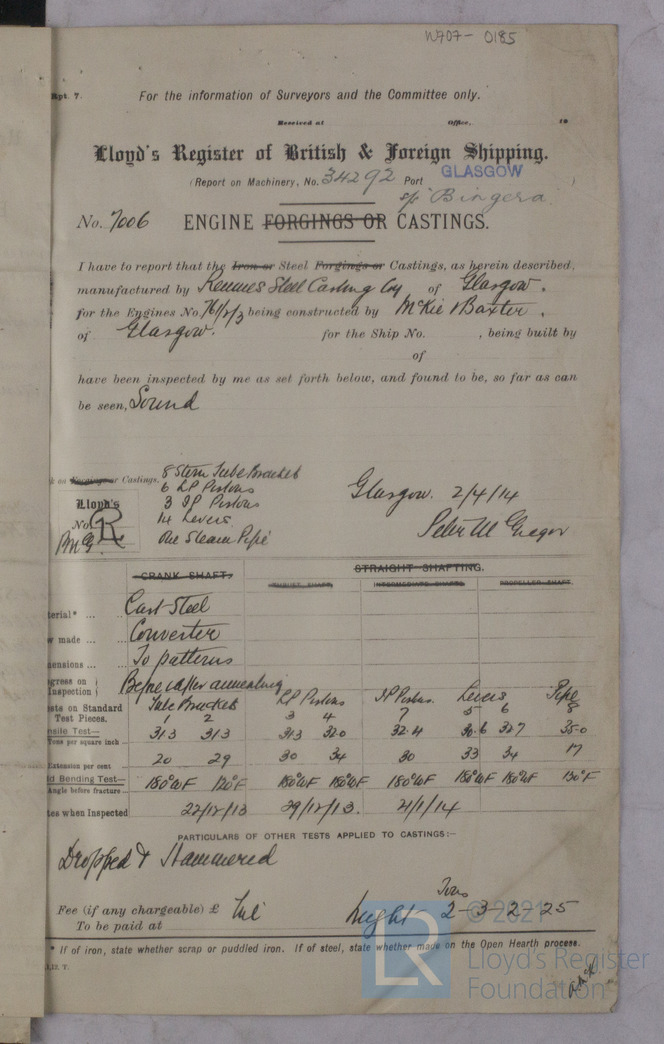 W707-0185
Rpt. 7.
For the information of Surveyors and the Committee only.
Received at Office, 19
Lloyd's Register of British & Foreign Shipping.
(Report on Machinery, No. 34292 Port GLASGOW
s/s Bingera
No. 7006 ENGINE FORGINGS OR CASTINGS.
I have to report that the Iron or Steel Forgings or Castings, as herein described,
manufactured by Rennies Steel Casting Coy of Glasgow.
for the Engines No. 761/2/3 being constructed by McKie & Baxter,
of Glasgow. for the Ship No. , being built by
of
have been inspected by me as set forth below, and found to be, so far as can
be seen, Sound
k on Forgings or Castings.
8 Stern Tube Bracket
6 LP Pistons
3 IP Pistons
14 Levers
One Steam Pipe
Lloyd's
No.
R
PMG
Glasgow. 2/4/14
Peter McGregor
CRANK SHAFT. STRAIGHT SHAFTING.
THRUST SHAFT. INTERMEDIATE SHAFTS. PROPELLER SHAFT.
terial* ... Cast Steel
w made ... Converter
mensions ... To patterns
ogress on Inspection Before & after annealing
ests on Standard Test Pieces. Tube Bracket LP Pistons IP Pistons. Levers Pipe
1 2 3 4 7 5 6 8
nsile Test— Tons per square inch 31.3 31.3 31.3 32.0 32.4 30.6 32.7 35.0
Extension per cent 20 29 30 34 30 33 34 17
ld Bending Test— Angle before fracture 180°WF 120°F 180°WF 180°WF 180°WF 180°WF 180°WF 130°F
tes when Inspected 22/12/13 29/12/13. 21/1/14
PARTICULARS OF OTHER TESTS APPLIED TO CASTINGS:—
Dropped & Hammered
Fee (if any chargeable) £ Nil
To be paid at
Weight Tons 2-3-2-25
* If of iron, state whether scrap or puddled iron. If of steel, state whether made on the Open Hearth process.
© 2021
LR
Lloyd's Register
Foundation